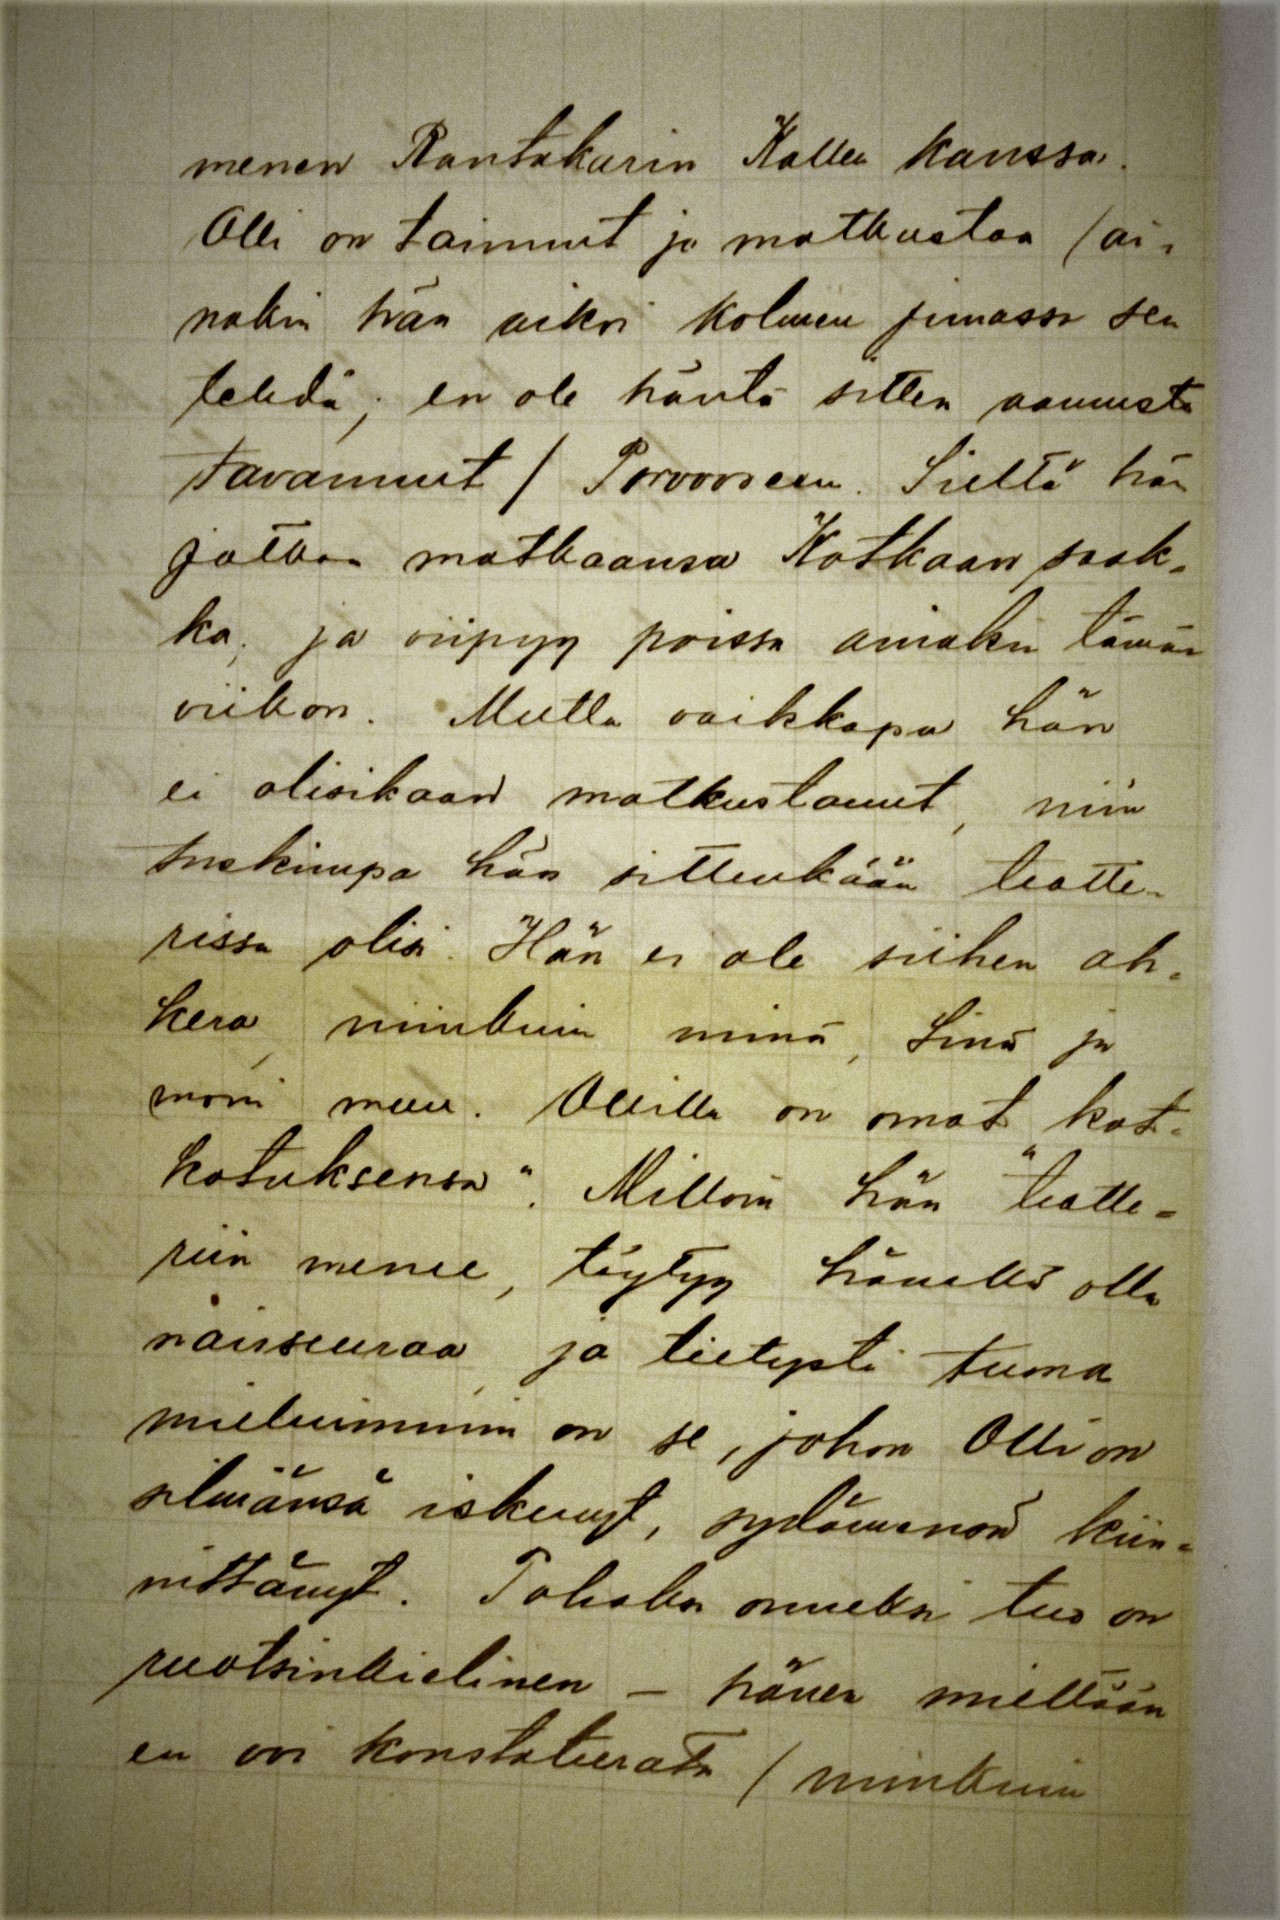 menen Rantakarin Kallen kanssa.
Olli on tainnut jo matkustaa /ai-
nakin hän aikoi kolmen junassa sen
tehdä; en ole häntä sitten aamusta
tavannut/ Porvooseen. Sieltä hän
jatkaa matkaansa Kotkaan saak-
ka, ja viipyy poissa ainakin tämän
viikon. Mutta vaikkapa hän
ei olisikaan matkustanut, niin
tuskinpa hän sittenkään teatte-
rissa olisi. Hän ei ole siihen ah-
kera, niinkuin minä, Sinä ja
moni muu. Ollilla on omat "kot-
kotuksensa". Milloin hän teatte-
riin menee, täytyy hänellä olla
naisseuraa, ja tietysti tuona
mieluimmin on se, johon Olli on
silmänsä iskenyt, sydämensä kiin-
nittänyt. Pahaksi onneksi tuo on
ruotsinkielinen — hänen mieltään
en voi konstateerata /niinkuin